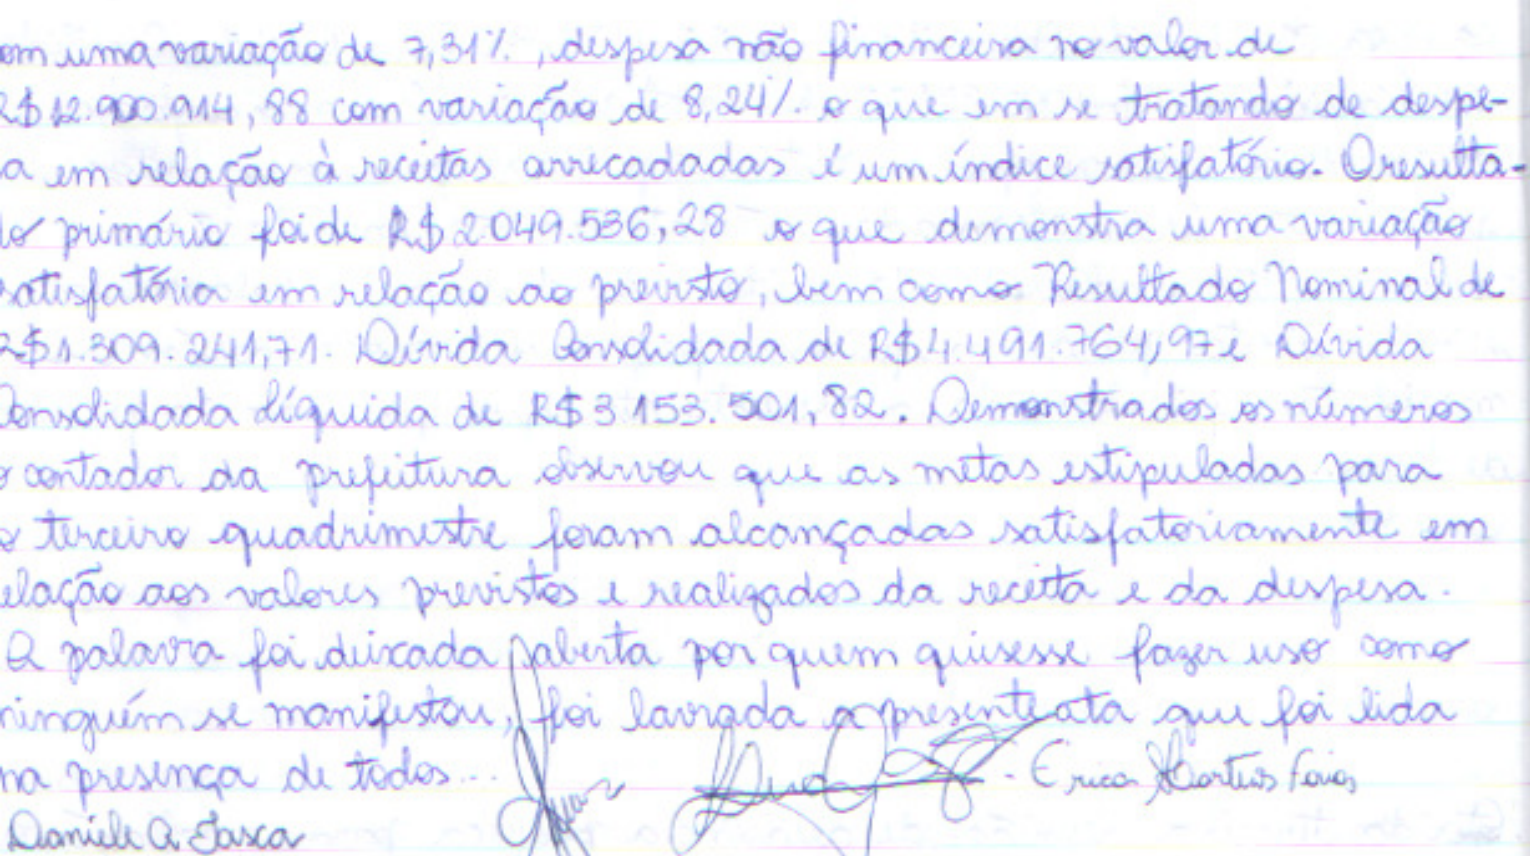 om uma variação de 7,31%, despesa não financeira no valor de
R$12.900.914,88 com variação de 8,24% o que em se tratando de despe-
a em relação à receitas arrecadadas é um índice satisfatório. O resulta-
do primário foi de R$2.049.536,28 o que demonstra uma variação
satisfatória em relação ao previsto, bem como Resultado Nominal de
R$1.309.241,71. Dívida Consolidada de R$4.491.764,97 e Dívida
Consolidada Líquida de R$3.153.501,82. Demonstrados os números
o contador da prefeitura observou que as metas estipuladas para
o terceiro quadrimestre foram alcançadas satisfatoriamente em
elação aos valores previstos e realizados da receita e da despesa.
A palavra foi deixada aberta por quem quisesse fazer uso como
ninguém se manifestou, foi lavrada a presente ata que foi lida
na presença de todos... Erica Martins Farias
Daniele A. Tasca